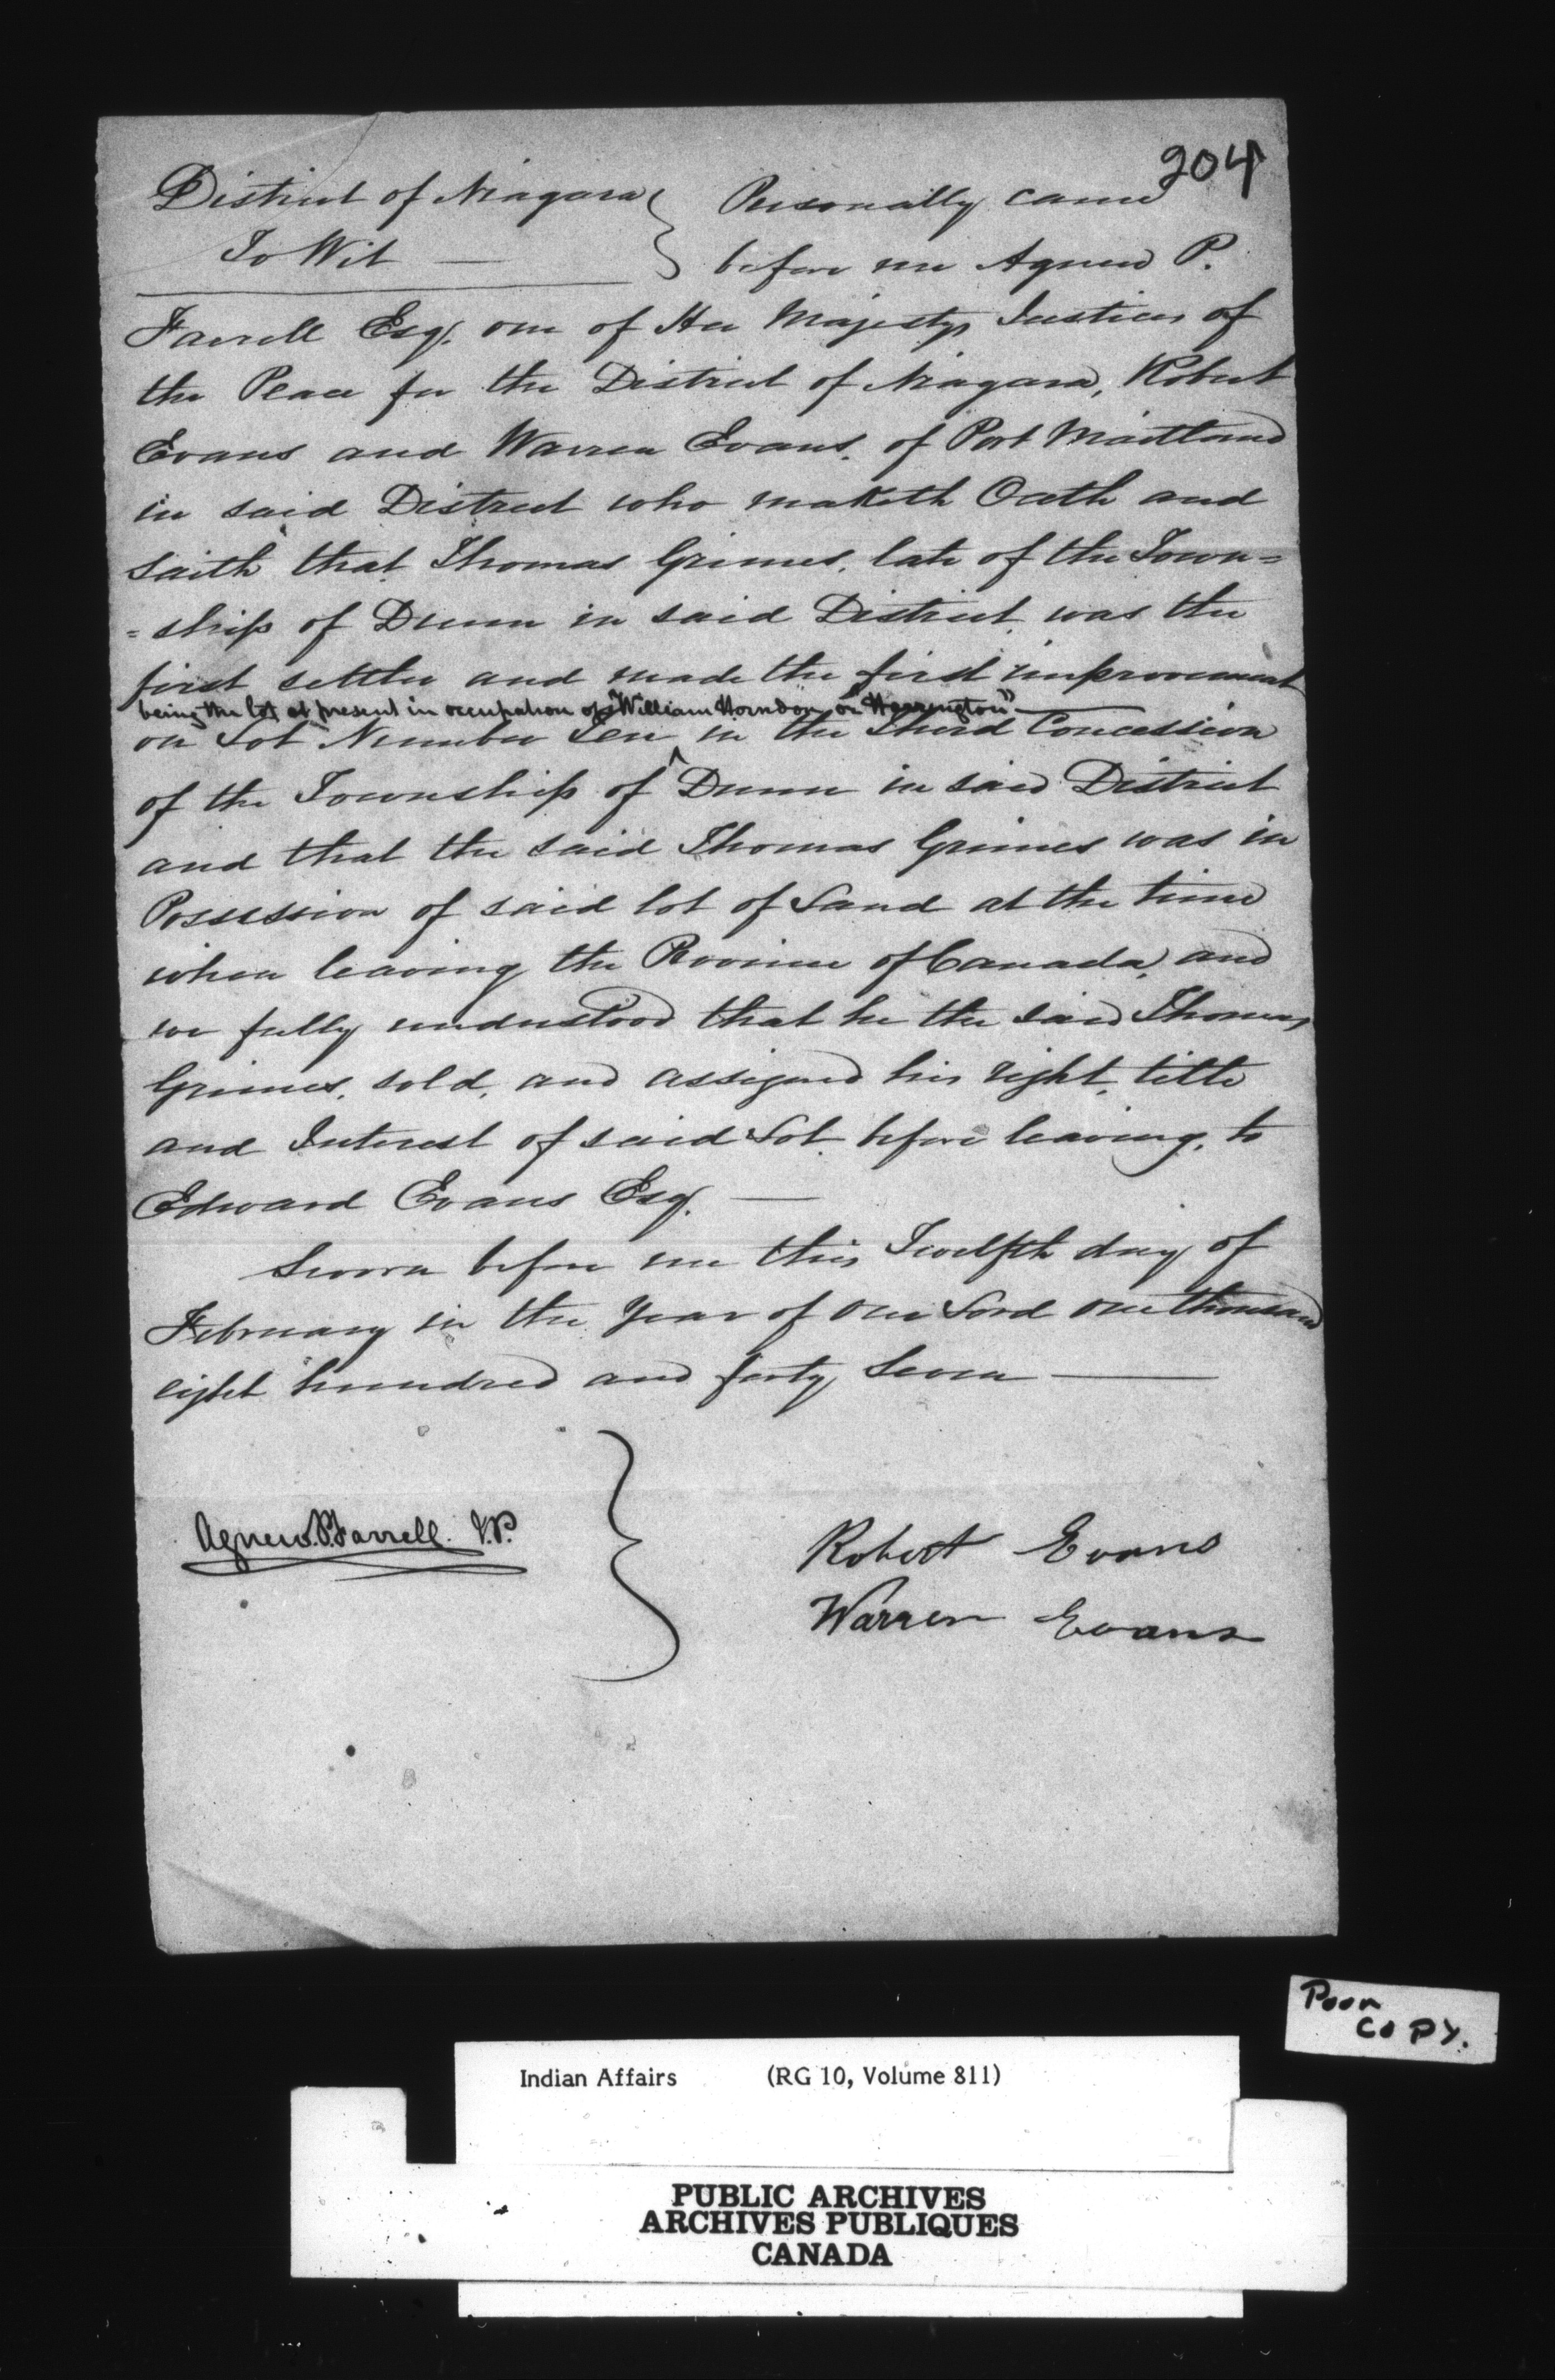 204
District of Niagara } Personally came
To Wit — } before me Agnew P.
Farrell Esq. one of Her Majestys Justices of
the Peace for the District of Niagara, Robert
Evans and Warren Evans, of Port Maitland
in said District who maketh Oath and
saith that Thomas Grimes, late of the Town=
=ship of Dunn in said District, was the
first settler and made the first improvement
being the lot at present in occupation of "William Horndon or Harrington" —
on Lot Number Ten in the Third Concession
of the Township of ^ Dunn in said District
and that the said Thomas Grimes was in
Possession of said lot of Land at the time
when leaving the Province of Canada, and
we fully understood that he the said Thomas
Grimes, sold, and assigned his right, title
and Interest of said Lot before leaving, to
Edward Evans Esq. —
Sworn before me this Twelfth day of
February in the Year of Our Lord One thousand
eight hundred and forty Seven —
Agnew P. Farrell. J.P. }
Robert Evans
Warren Evans
Poor
COPY.
Indian Affairs (RG 10, Volume 811)
PUBLIC ARCHIVES
ARCHIVES PUBLIQUES
CANADA